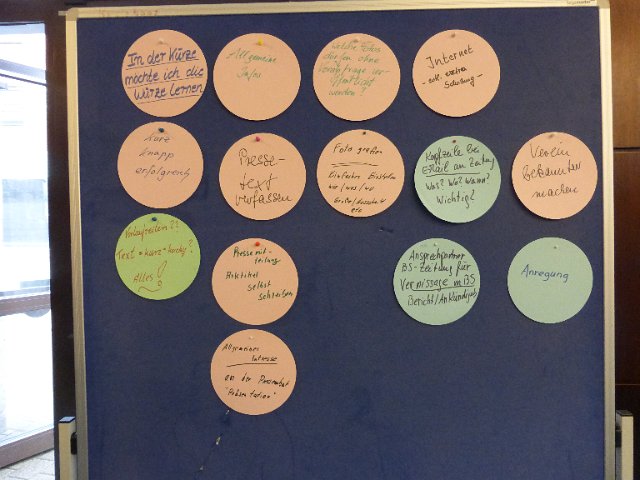 In der Kürze
möchte ich die
Würze lernen
Allgemeine
Infos
Welche Fotos
dürfen ohne
veröffentlicht
werden?
Internet
- evtl. extra
Schulung -
Kurz
knapp
erfolgreich
Presse-
text
verfassen
Fotografien
Einfachere
wo/was/wo
etc
Kopfzeile bei
Email an Zeitung
Was? Wo? Wann?
Wichtig?
Verein
bekannter
machen
Vorlaufzeiten??
Text = kurz + knackig?
Alles!
Pressemit-
teilung
Artikel
selbst
schreiben
Ansprechpartner
BS-Zeitung für
Vernissage in BS
Bericht/Ankündigung
Anregung
Allgemeines
Interesse
an der Pressearbeit
"Präsentation"